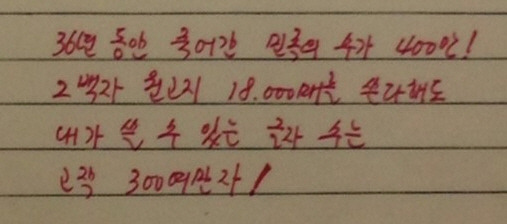 36년 동안 죽어간 민족의 수가 400만!
2백자 원고지 18.000매를 쓴다해도
내가 쓸 수 있는 글자 수는
고작 300여만자!